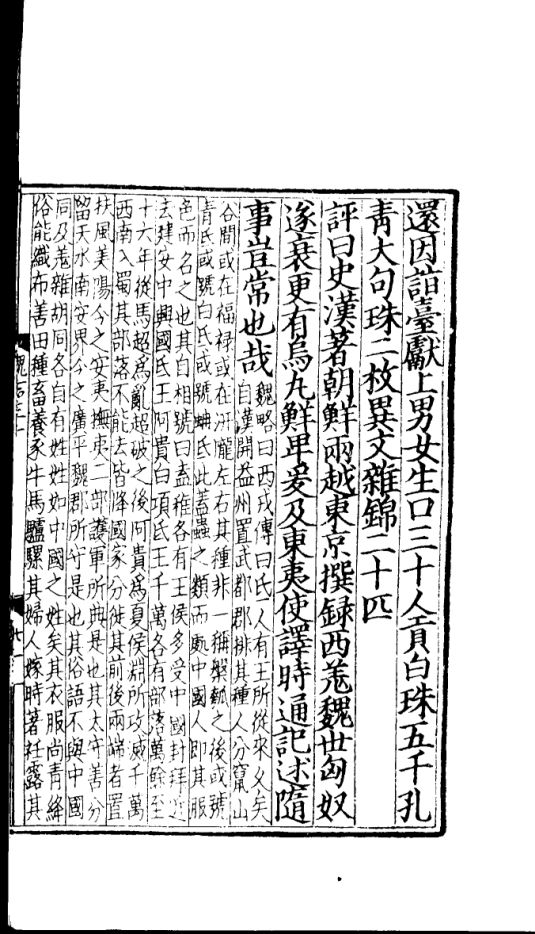 還因詣臺獻上男女生口三十人貢白珠五千孔
青大句珠二枚異文雜錦二十匹
評曰史漢著朝鮮兩越東京撰録西羌魏世匈奴
遂衰更有烏九鮮卑爰及東夷使譯時通記述隨
事豈常也哉
魏略曰西戎傳曰氐人有王所從來久矣
自漢開益州置武都郡排其種人分竄山
谷間或在福禄或在汧隴左右其種非一稱槃瓠之後或號
青氐或號白氐或號蚺氐此蓋蟲之類而處中國人即其服
色而名之也其自相號曰盍稚各有王侯多受中國封拜近
去建安中興國氐王阿貴白項氐王千萬各有部落萬餘至
十六年從馬超爲亂超破之後阿貴爲夏侯淵所攻滅千萬
西南入蜀其部落不能去皆降國家分徙其前後兩端者置
扶風美陽今之安夷撫夷二部護軍所典是也其太守善分
留天水南安界今之廣平魏郡所守是也其俗語不與中國
同及羌雜胡同各自有姓姓如中國之姓矣其衣服尚青絳
俗能織布善田種畜養豕牛馬驢騾其婦人嫁時著衽露其